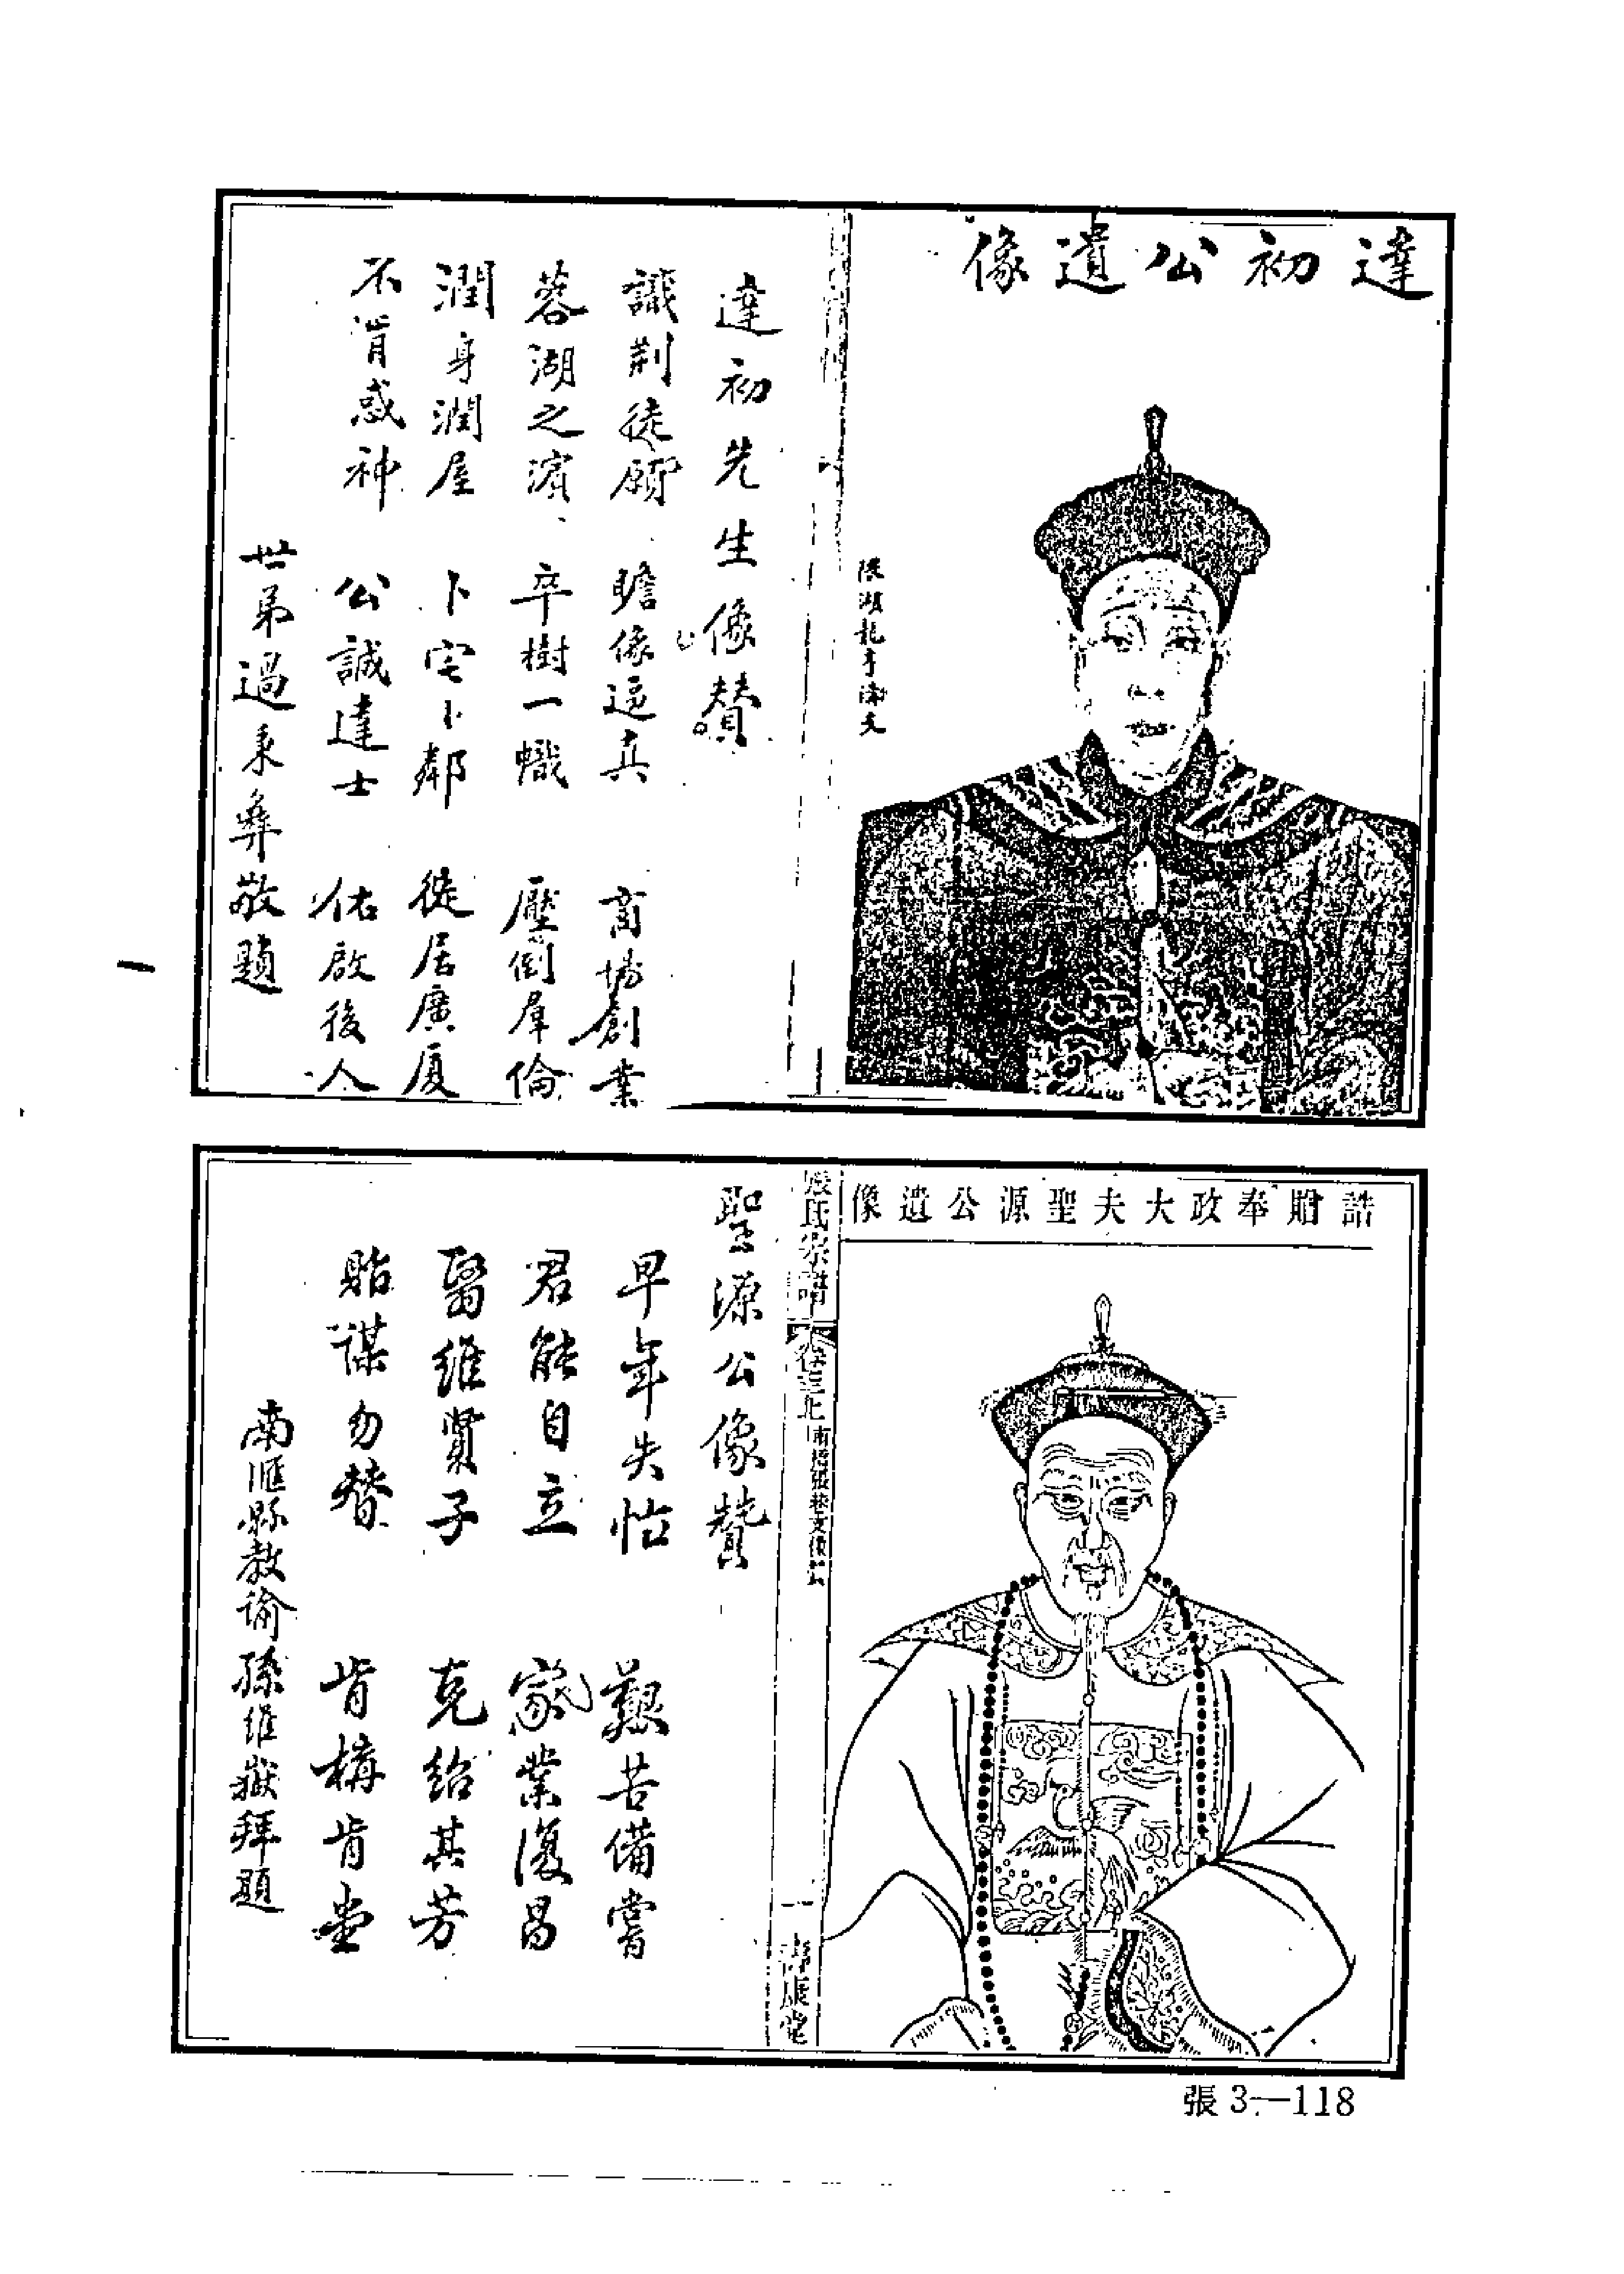 達初公遺像
達初先生像贊
識荆徒願 瞻像逼真 商塲創業
蓉湖之濱 卒樹一幟 壓倒羣倫
潤身潤屋 卜宅卜鄰 徙居廣厦
不肯惑神 公誠達士 佑啟後人
世弟過秉彝敬題
誥貤奉政大夫聖源公遺像
氏宗譜
卷三上
聖源公像贊
早年失怙 艱苦備嘗
君能自立 家業復昌
醫維賢子 克紹其芳
貽謀勿替 肯構肯堂
南匯縣教諭孫維嶽拜題
張3—118